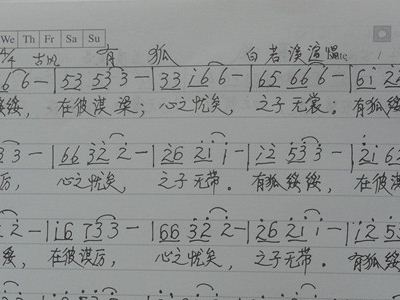 We Th Fr Sa Su
4/4 古风 有狐
6 6 - | 53 53 3 - | 33 i6 6 - | 65 66 6 - | 6i
绥, 在彼淇梁; 心之忧矣, 之子无裳; 有狐
3 - | 66 32 2 - | 26 2i i - | i2 53 3 - | 2i 6
厉, 心之忧矣, 之子无带。 有狐绥绥, 在彼淇
- | i6 73 3 - | 66 32 2 - | 26 2i i - | i2 5
绥, 在彼淇厉, 心之忧矣, 之子无带。 有狐绥